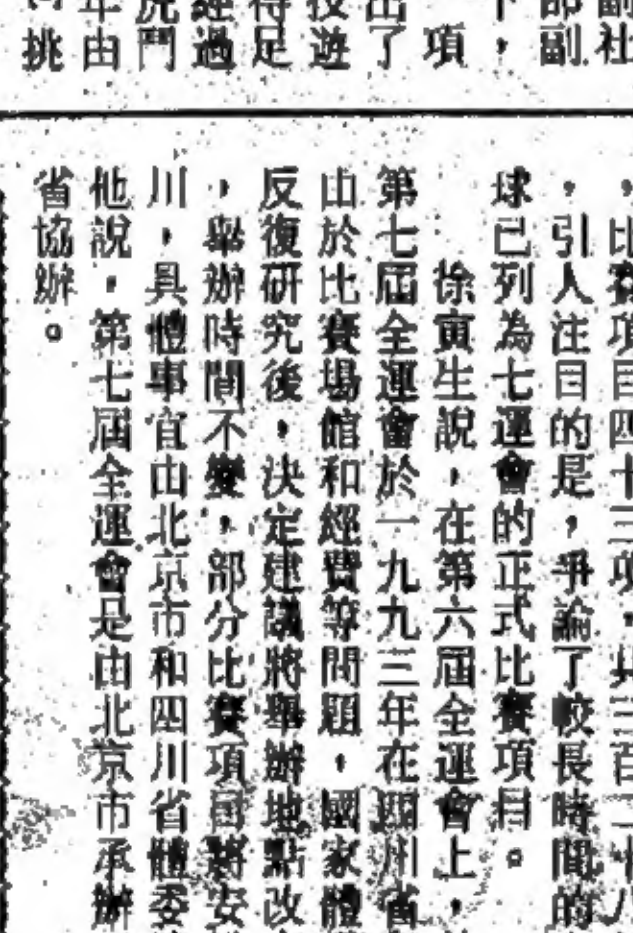 副社
部副
下，
項
出了
技遊
待足
經過
虎鬥
年由
挑
，比賽項目四十三項，共三百二十八
，引人注目的是，爭論了較長時間的
球已列為七運會的正式比賽項目。
徐寅生說，在第六屆全運會上，
第七屆全運會於一九九三年在四川省
由於比賽場館和經費等問題，國家體
反復研究後，決定建議將舉辦地點改
，舉辦時間不變，部分比賽項目將安
川，具體事宜由北京市和四川省體委
他說，第七屆全運會是由北京市承辦
省協辦。